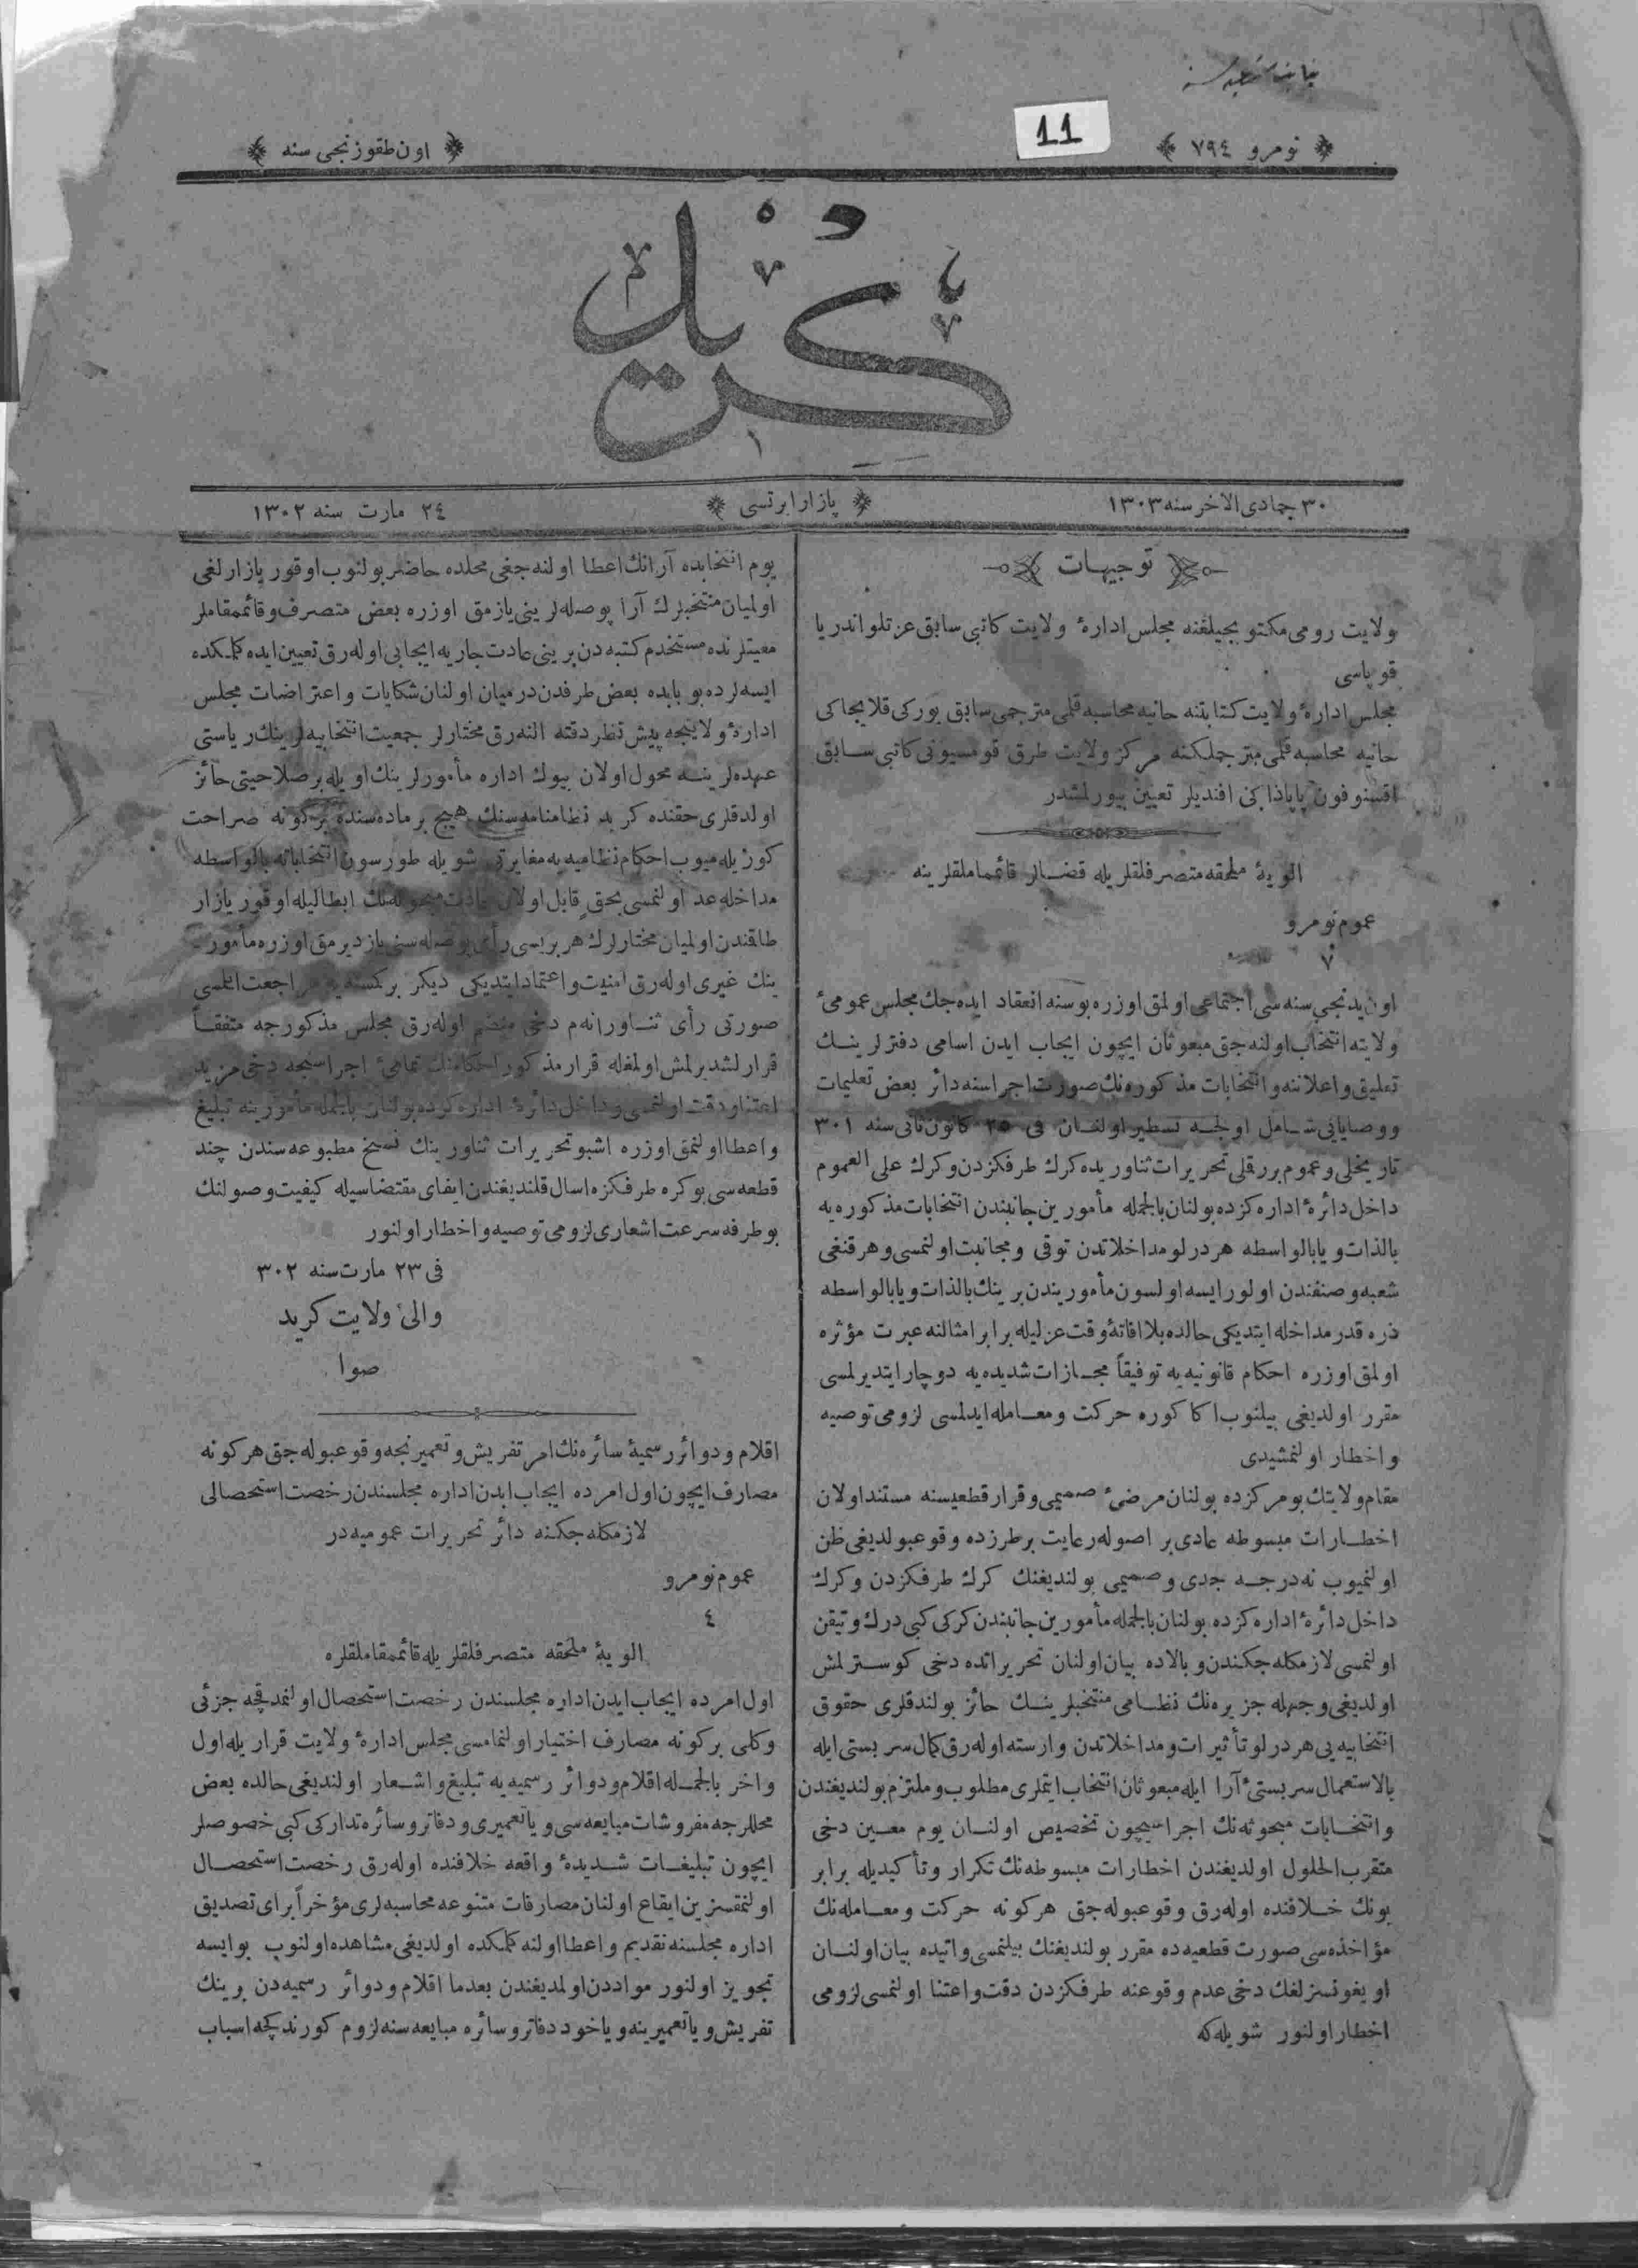 11
نومرو ٧٩٤
اون طقوزنجی سنه
كريد
٣٠ جمادی الاخر سنه ١٣٠٣
پازار ایرتسی
٢٤ مارت سنه ١٣٠٢
توجيهات
ولايت رومی مكتوبجيلغنه مجلس ادارهٔ ولايت كاتبی سابق عزتلو اندريا
قوپاسی
مجلس ادارهٔ ولايت كتابتنه حانيه محاسبه قلمی مترجمی سابق يوركی قلايجاكی
حانيه محاسبه قلمی مترجملكنه مركز ولايت طرق قومسيونی كاتبی سابق
اقسنوفون پاپاداكی افنديلر تعيين بيورلمشدر
الويهٔ ملحقه متصرفلقلريله قضالر قائممقاملقلرينه
عموم نومرو
٧
اون يدنجی سنه سی اجتماعی اولمق اوزره بو سنه انعقاد ايده جك مجلس عمومیٔ
ولايته انتخاب اولنه جق مبعوثان ايچون ايجاب ايدن اسامی دفترلرينك
تعليق و اعلاننه و انتخابات مذكوره نك صورت اجراسنه دائر بعض تعليمات
و وصايايی شامل اولجه تسطير اولنان فی ٢٥ كانون ثانی سنه ٣٠١
تاريخلی و عموم بر رقملی تحريرات ثناوريده كرك طرفكزدن و كرك علی العموم
داخل دائرهٔ اداره كزده بولنان بالجمله مأمورين جانبندن انتخابات مذكوره يه
بالذات و يا بالواسطه هر درلو مداخلاتدن توقی و مجانبت اولنمسی و هر قنغی
شعبه و صنفندن اولور ايسه اولسون مأموريندن برينك بالذات و يا بالواسطه
ذره قدر مداخله ايتديكی حالده بلا افاتهٔ وقت عزليله برابر امثالنه عبرت مؤثره
اولمق اوزره احكام قانونيه يه توفيقاً مجازات شديده يه دوچار ايتديرلمسی
مقرر اولديغی بيلنوب اكا كوره حركت و معامله ايدلمسی لزومی توصيه
و اخطار اولنمشيدی
مقام ولايتك بو مركزده بولنان مرضیٔ صميمی و قرار قطعيسنه مستند اولان
اخطارات مبسوطه عادی بر اصوله رعايت بر طرزده وقوعبولديغی ظن
اولنميوب نه درجه جدی و صميمی بولنديغنك كرك طرفكزدن و كرك
داخل دائرهٔ اداره كزده بولنان بالجمله مأمورين جانبندن كركی كبی درك و تيقن
اولنمسی لازمكله جكندن و بالاده بيان اولنان تحريراتده دخی كوسترلمش
اولديغی وجهله جزيره نك نظامی منتخبلرينك حائز بولندقلری حقوق
انتخابيه يی هر درلو تأثيرات و مداخلاتدن وارسته اوله رق كمال سربستی ايله
بالاستعمال سربستیٔ آرا ايله مبعوثان انتخاب ايتملری مطلوب و ملتزم بولنديغندن
و انتخابات مبحوثه نك اجراسيچون تخصيص اولنان يوم معين دخی
متقرب الحلول اولديغندن اخطارات مبسوطه نك تكرار و تأكيديله برابر
بونك خلافنده اوله رق وقوعبوله جق هر كونه حركت و معامله نك
مؤاخذه سی صورت قطعيه ده مقرر بولنديغنك بيلنمسی و آتيده بيان اولنان
اويغونسزلغك دخی عدم وقوعنه طرفكزدن دقت و اعتنا اولنمسی لزومی
اخطار اولنور شويله كه
يوم انتخابده آرانك اعطا اولنه جغی محلده حاضر بولنوب اوقور يازارلغی
اوليان منتخبلرك آرا پوصله لرينی يازمق اوزره بعض متصرف و قائممقاملر
معيتلرنده مستخدم كتبه دن برينی عادت جاريه ايجابی اوله رق تعيين ايده كلمكده
ايسه لرده بو بابده بعض طرفدن درميان اولنان شكايات و اعتراضات مجلس
ادارهٔ ولايتجه پيش نظر دقته النه رق مختارلر جمعيت انتخابيه لرينك رياستی
عهده لرينه محول اولان بيوك اداره مأمورلرينك اويله بر صلاحيتی حائز
اولدقلری حقنده كريد نظامنامه سنك هيچ بر ماده سنده بر كونه صراحت
كوريله ميوب احكام نظاميه يه مغايرتی شويله طورسون انتخاباته بالواسطه
مداخله عد اولنمسی بحق قابل اولان عادت مبحوثه نك ابطاليله اوقور يازار
طاقندن اوليان مختارلرك هر بريسی رأی پوصله سنی يازديرمق اوزره مأمور
ينك غيری اوله رق امنيت و اعتماد ايتديكی ديكر بر كمسه يه مراجعت ايلمسی
صورتی رأی ثناورانه م دخی منضم اوله رق مجلس مذكورجه متفقاً
قرارلشديرلمش اولمغله قرار مذكور احكامنك تمامیٔ اجراسنجه دخی مزيد
اعتنا و دقت اولنمسی و داخل دائرهٔ اداره كزده بولنان بالجمله مأمورينه تبليغ
و اعطا اولنمق اوزره اشبو تحريرات ثناورينك نسخ مطبوعه سندن چند
قطعه سی بو كره طرفكزه اسال قلنديغندن ايفای مقتضاسيله كيفيت وصولنك
بو طرفه سرعت اشعاری لزومی توصيه و اخطار اولنور
فی ٢٣ مارت سنه ٣٠٢
والیٔ ولايت كريد
صوا
اقلام و دوائر رسميهٔ سائره نك امر تفريش و تعميرنجه وقوعبوله جق هر كونه
مصارف ايچون اول امرده ايجاب ايدن اداره مجلسندن رخصت استحصالی
لازمكله جكنه دائر تحريرات عموميه در
عموم نومرو
٤
الويهٔ ملحقه متصرفلقلريله قائممقاملقلره
اول امرده ايجاب ايدن اداره مجلسندن رخصت استحصال اولنمدقجه جزئی
و كلی بر كونه مصارف اختيار اولنمامسی مجلس ادارهٔ ولايت قراريله اول
و اخر بالجمله اقلام و دوائر رسميه يه تبليغ و اشعار اولنديغی حالده بعض
محللرجه مفروشات مبايعه سی و يا تعميری و دفاتر و سائره تداركی كبی خصوصلر
ايچون تبليغات شديدهٔ واقعه خلافنده اوله رق رخصت استحصال
اولنمقسزين ايقاع اولنان مصارفات متنوعه محاسبه لری مؤخراً برای تصديق
اداره مجلسنه تقديم و اعطا اولنه كلمكده اولديغی مشاهده اولنوب بو ايسه
تجويز اولنور مواددن اولمديغندن بعدما اقلام و دوائر رسميه دن برينك
تفريش و يا تعميرينه و ياخود دفاتر و سائره مبايعه سنه لزوم كورندكچه اسباب